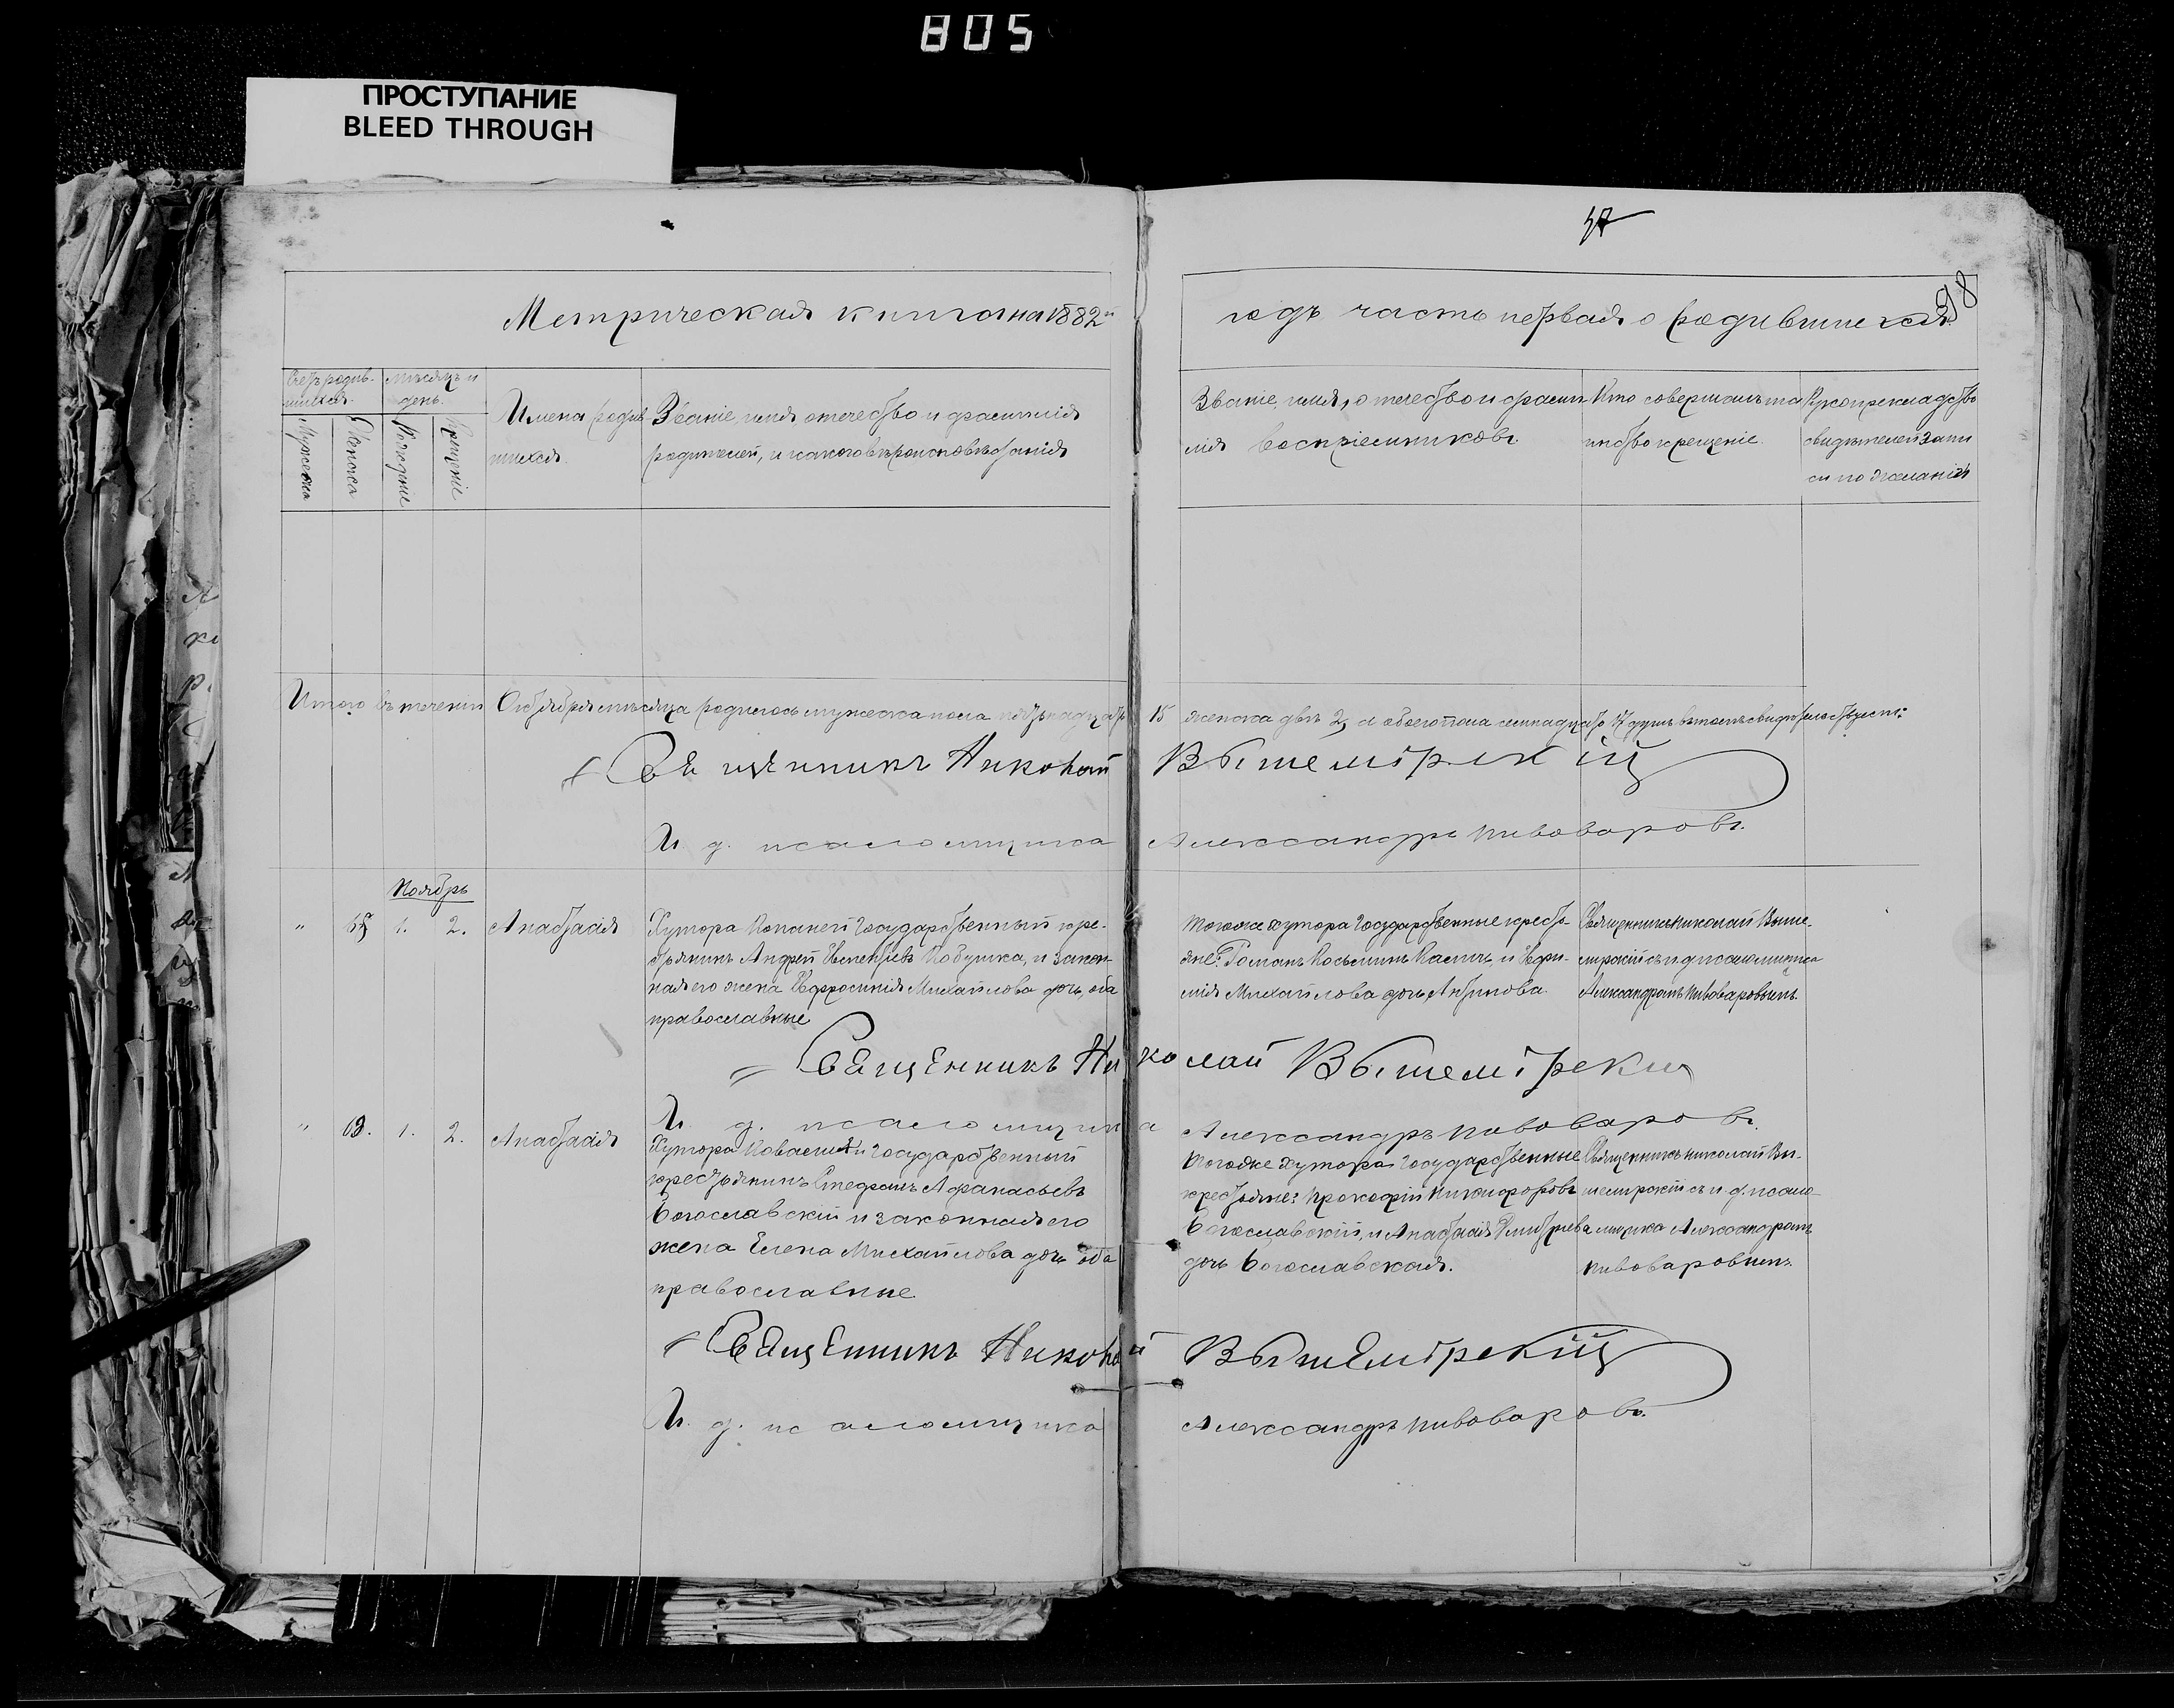 805
ПРОСТУПАНИЕ
BLEED THROUGH
47
98
Метрическая книга на 1882й
годъ часть первая о родившихся.
Счетъ родив-
шихся.
Мѣсяцъ и
день.
Мужеска
Женска
Рожденіе
Крещеніе
Имена родив
шихся.
Званіе, имя отечество и фамилія
родителей, и какого вѣроисповѣданія
Званіе, имя, отечество и фами
лія воспріемниковъ.
Кто совершалъ та
инство крещеніе.
Рукоприкладство
свидѣтелей запи
си по желанію
Итого въ теченіи Октября мѣсяца родилось мужеска пола пятьнадцать 15 женска двѣ 2, а обоего пола семнадцать 17 душъ въ томъ свидѣтельствуемъ:
Священникъ Николай Вышемірскій
И. д. псаломщика Александръ Пивоваровъ.
Ноябрь
" 1. 2. Анастасія
Хутора Копаней Государственный кре-
стьянинъ Андрей Кобушка, и закон-
ная его жена Евфросинія Михайлова дочь, оба
православные
Тогоже хутора Государственные кресть-
яне: Романъ Косьминъ и Евфи-
мія Михайлова дочь
Священникъ Николай Выше-
мірскій съ и. д. псаломщика
Александромъ Пивоваровымъ.
Священникъ Николай Вышемірскій
И. д. псаломщика Александръ Пивоваровъ.
" 1. 2. Анастасія
Хутора Государственный
крестьянинъ Стефанъ Афанасьевъ
Богославскій и законная его
жена Елена Михайлова дочь оба
православные
Тогоже хутора Государственные
крестьяне: Прокофій Никифоровъ
Богославскій, и Анастасія Дмитріева
дочь Богославская.
Священникъ Николай Вы-
шемірскій съ и. д. псало-
мщика Александромъ
Пивоваровымъ.
Священникъ Николай Вышемірскій
И. д. псаломщика Александръ Пивоваровъ.